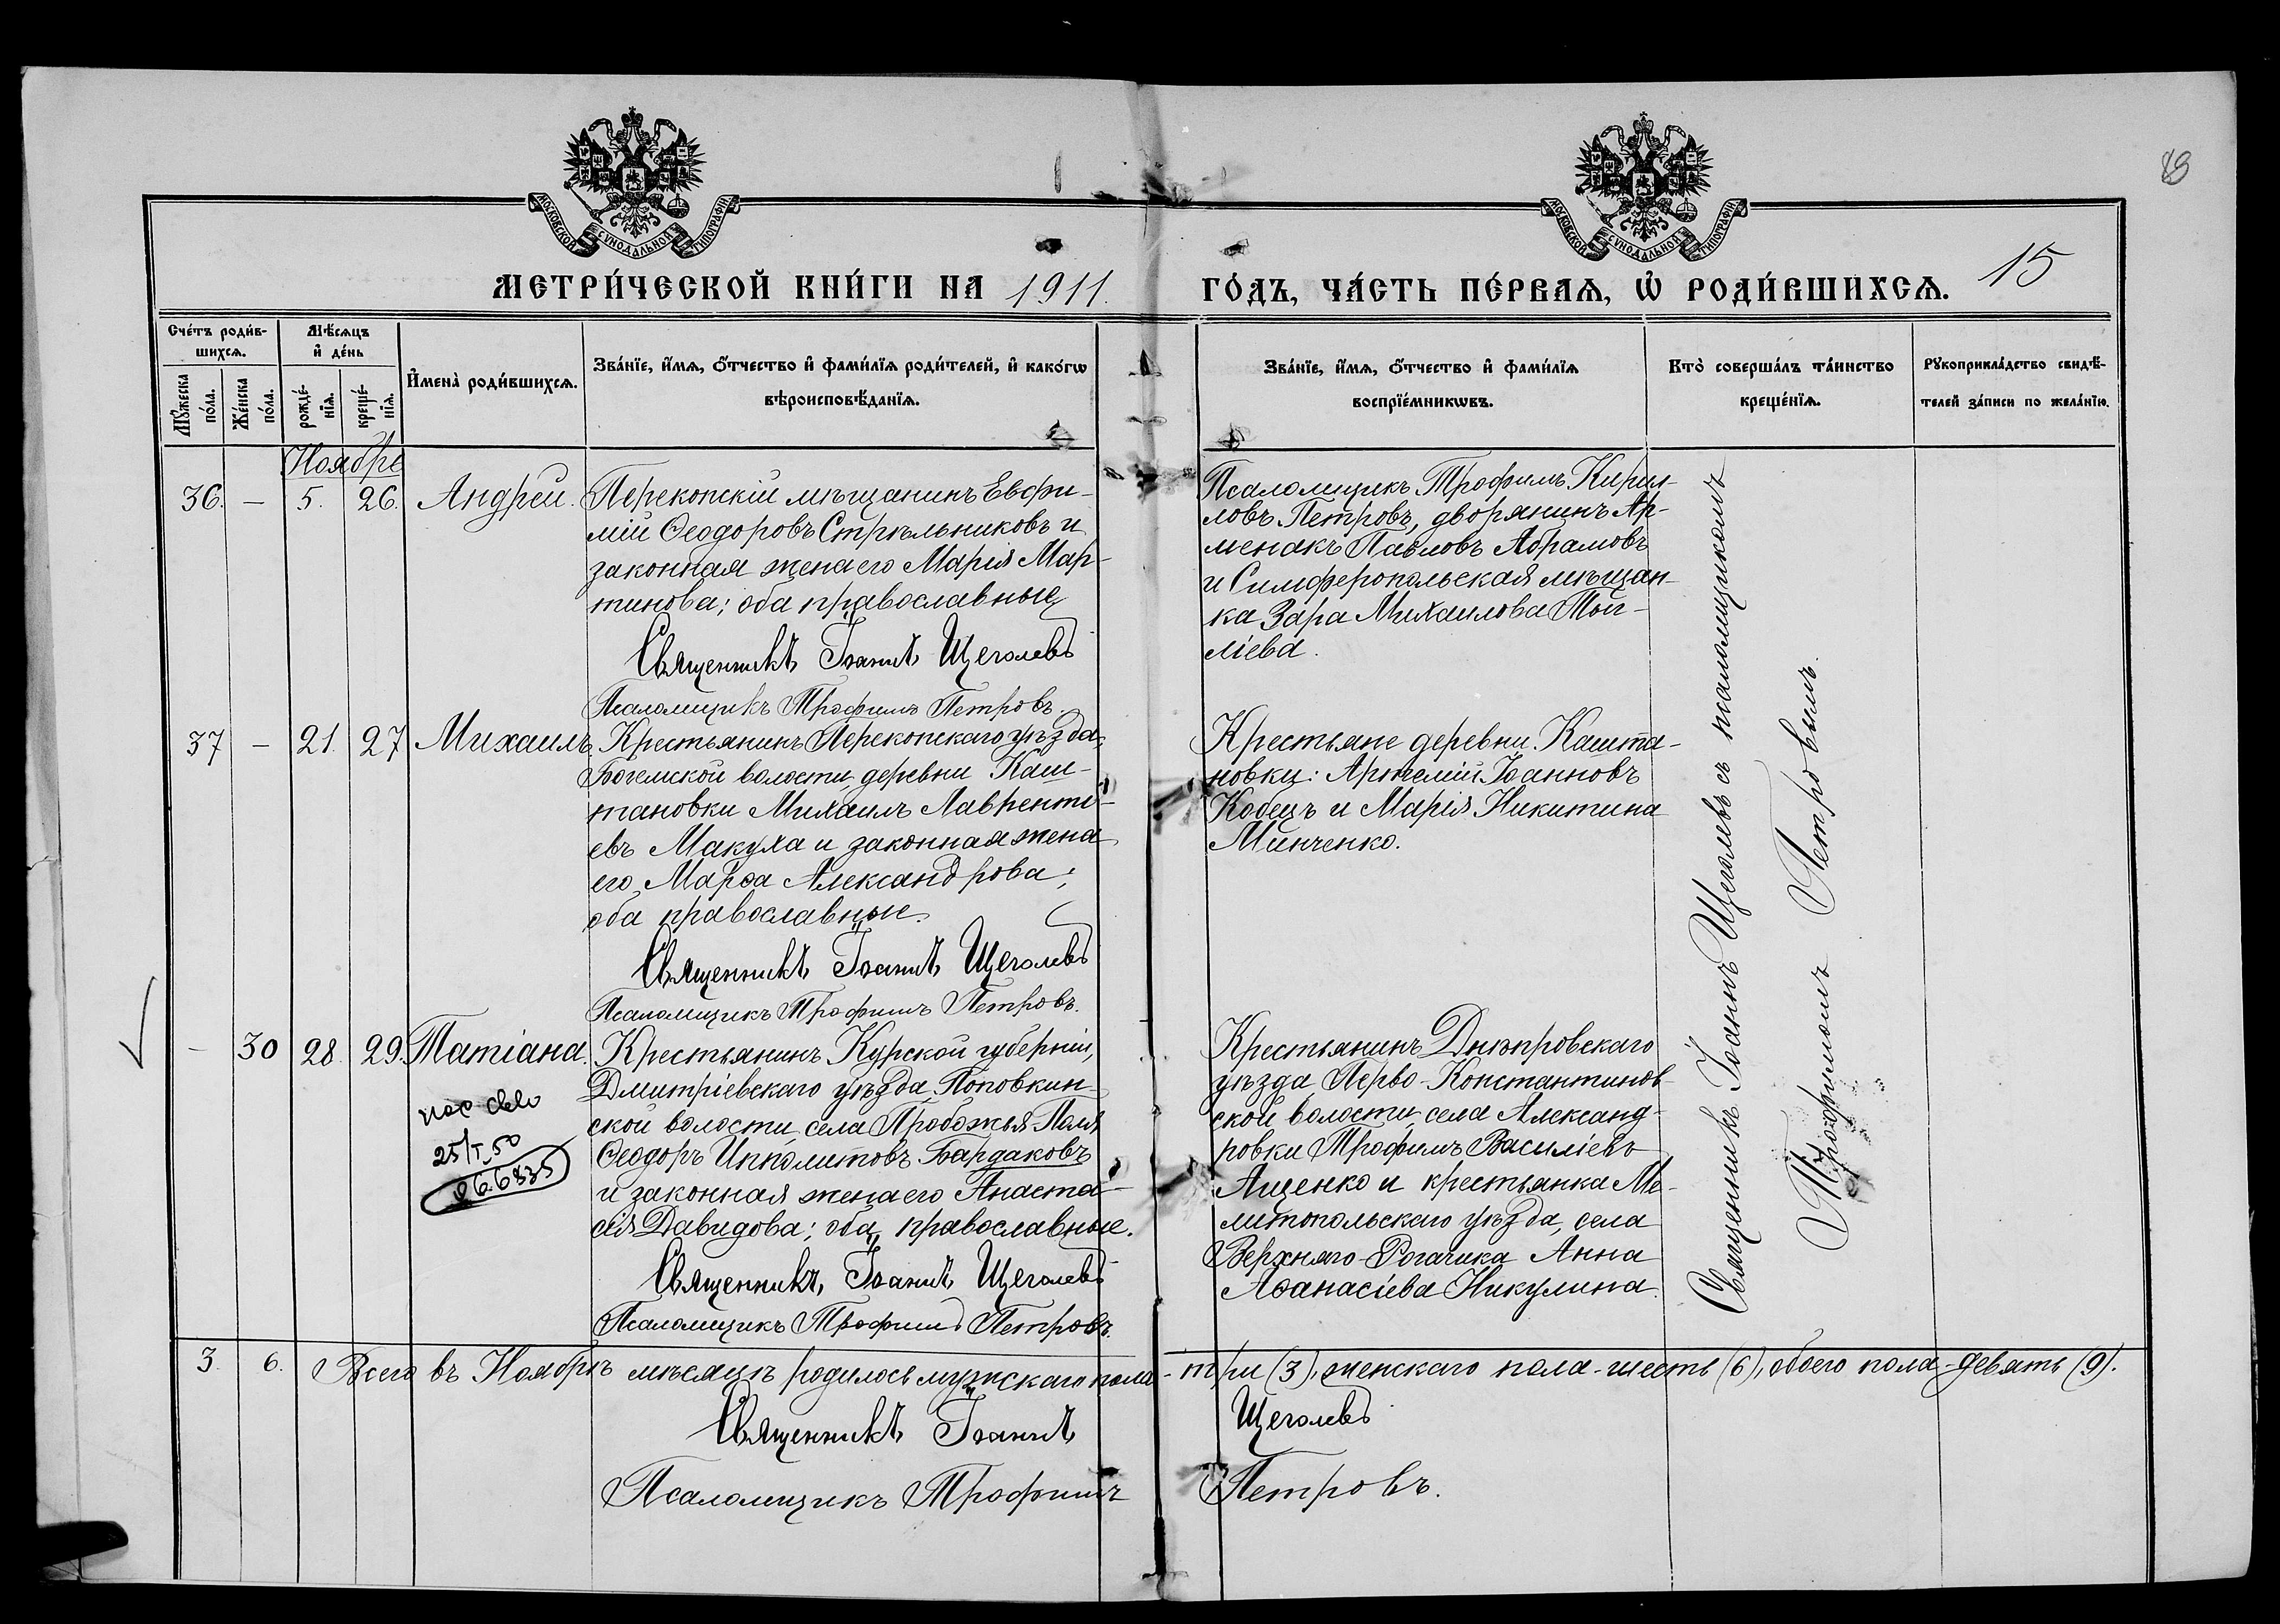 89
МОСКОВСКОЙ СУНОДАЛЬНОЙ ТИПОГРАФІИ
МОСКОВСКОЙ СУНОДАЛЬНОЙ ТИПОГРАФІИ
МЕТРИ́ЧЕСКОЙ КНИ́ГИ НА 1911. ГО́ДЪ, ЧА́СТЬ ПЕ́РВАѦ, Ѡ РОДИ́ВШИХСѦ. 15
Сче́тъ роди́в-
шихсѧ.
Мѣ́сѧцъ
и҆ де́нь
И҆мена̀ роди́вшихсѧ.
Зва́нїе, и҆́мѧ, ѻ҆́тчество и҆ фами́лїѧ роди́телей, и҆ како́гѡ
вѣроисповѣ́данїѧ.
Зва́нїе, и҆́мѧ, ѻ҆́тчество и҆ фами́лїѧ
воспрїе́мникѡвъ.
Кто̀ соверша́лъ та́инство
креще́нїѧ.
Рꙋкоприкла́дство свидѣ́-
телей за́писи по жела́нїю.
Мꙋ́жеска
по́ла.
Же́нска
по́ла.
рожде́-
нїѧ.
креще́-
нїѧ.
Ноябре
36. — 5. 26. Андрей.
Перекопскій мѣщанинъ Евфи-
мій Ѳеодоровъ Стрѣльниковъ и
законная жена его Марія Мар-
тинова; оба православные
Священникъ Іоаннъ Щеголевъ
Псаломщикъ Трофимъ Петровъ.
Псаломщикъ Трофимъ Кирил-
ловъ Петровъ, дворянинъ Ар-
менакъ Павловъ Абрамовъ
и Симферопольская мѣщан-
ка Зара Михаилова
ліева.
37 — 21. 27 Михаилъ
Крестьянинъ Перекопскаго уѣзда,
Богемской волости, деревни Каш-
тановки Михаилъ Лавренті-
евъ Макуха и законная жена
его Марѳа Александрова;
оба православные.
Священникъ Іоаннъ Щеголевъ
Псаломщикъ Трофимъ Петровъ.
Крестьяне деревни Кашта-
новки: Артемій Іоанновъ
Кобецъ и Марія Никитина
Минченко.
— 30 28. 29. Татіана.
25/I 50
Крестьянинъ Курской губерніи,
Дмитріевскаго уѣзда, Поповкин-
ской волости, села Пробожья-Поля
Ѳеодоръ Ипполитовъ Бардаковъ
и законная жена его Анаста-
сія Давидова; оба православные.
Священникъ Іоаннъ Щеголевъ
Псаломщикъ Трофимъ Петровъ.
Крестьянинъ Днѣпровскаго
уѣзда Перво-Константинов-
ской волости, села Александ-
ровки Трофимъ Василіевъ
Ященко и крестьянка Ме-
литопольскаго уѣзда, села
Верхняго-Рогачика Анна
Аѳанасіева Никулина.
Священникъ Іоаннъ Щеголевъ съ псаломщикомъ
Трофимомъ Петровымъ.
3. 6. Всего въ Ноябрѣ мѣсяцѣ родилось мужскаго пола-три (3), женскаго пола-шесть (6), обоего пола-девять (9).
Священникъ Іоаннъ Щеголевъ
Псаломщикъ Трофимъ Петровъ.